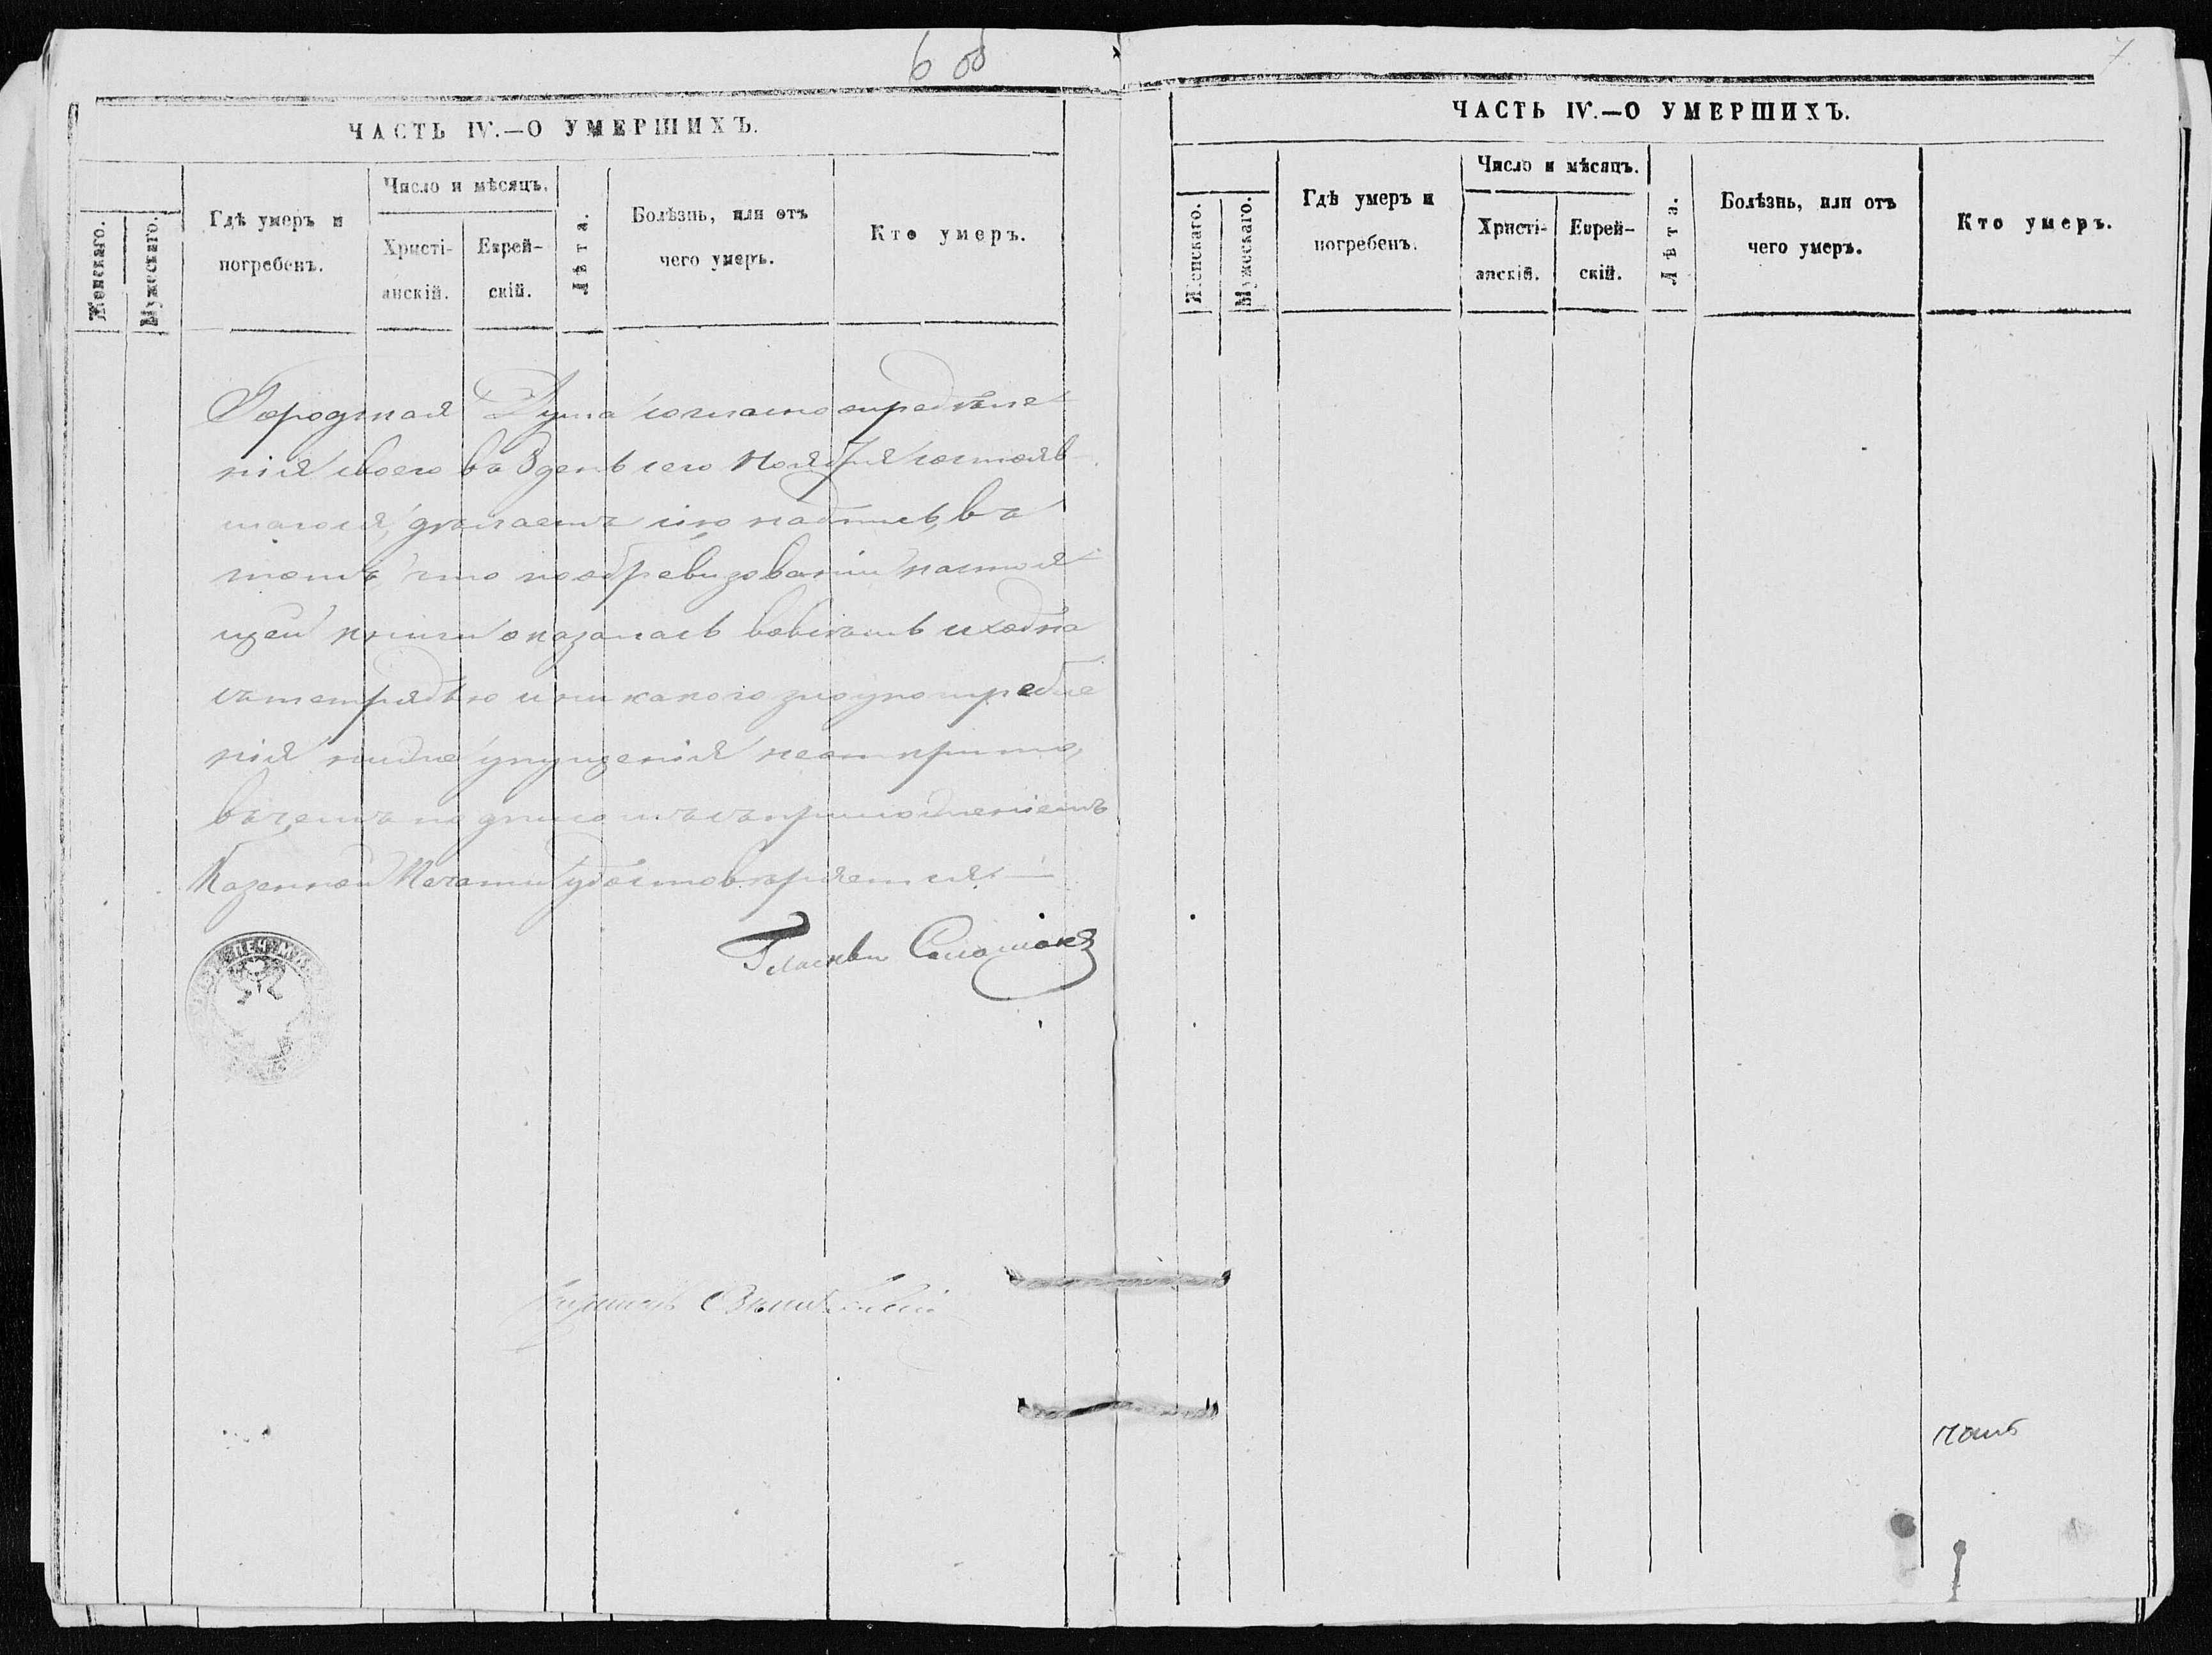 6 об
7.
ЧАСТЬ IV.—О УМЕРШИХЪ.
Женскаго.
Мужескаго.
Гдѣ умеръ и
погребенъ.
Число и мѣсяцъ.
Христі-
анскій.
Еврей-
скій.
Лѣта.
Болѣзнь, или отъ
чего умеръ.
Кто умеръ.
Городская Дума согласно опредѣле
нія своего въ 3 день сего Ноября состояв
шагося, дѣлаетъ сію надпись, въ
томъ, что по обревизованіи настоя
щей книги оказалась во всемъ сходна
съ тетрадью и никакого злоупотребле
нія ниже упущенія не открыто,
въ чемъ подписомъ съ приложеніемъ
Казенной Печати удостовѣряется
Гласный
ПЕЧ
ЧАСТЬ IV.—О УМЕРШИХЪ.
Женскаго.
Мужескаго.
Гдѣ умеръ и
погребенъ.
Число и мѣсяцъ.
Христі-
анскій.
Еврей-
скій.
Лѣта.
Болѣзнь, или отъ
чего умеръ.
Кто умеръ.